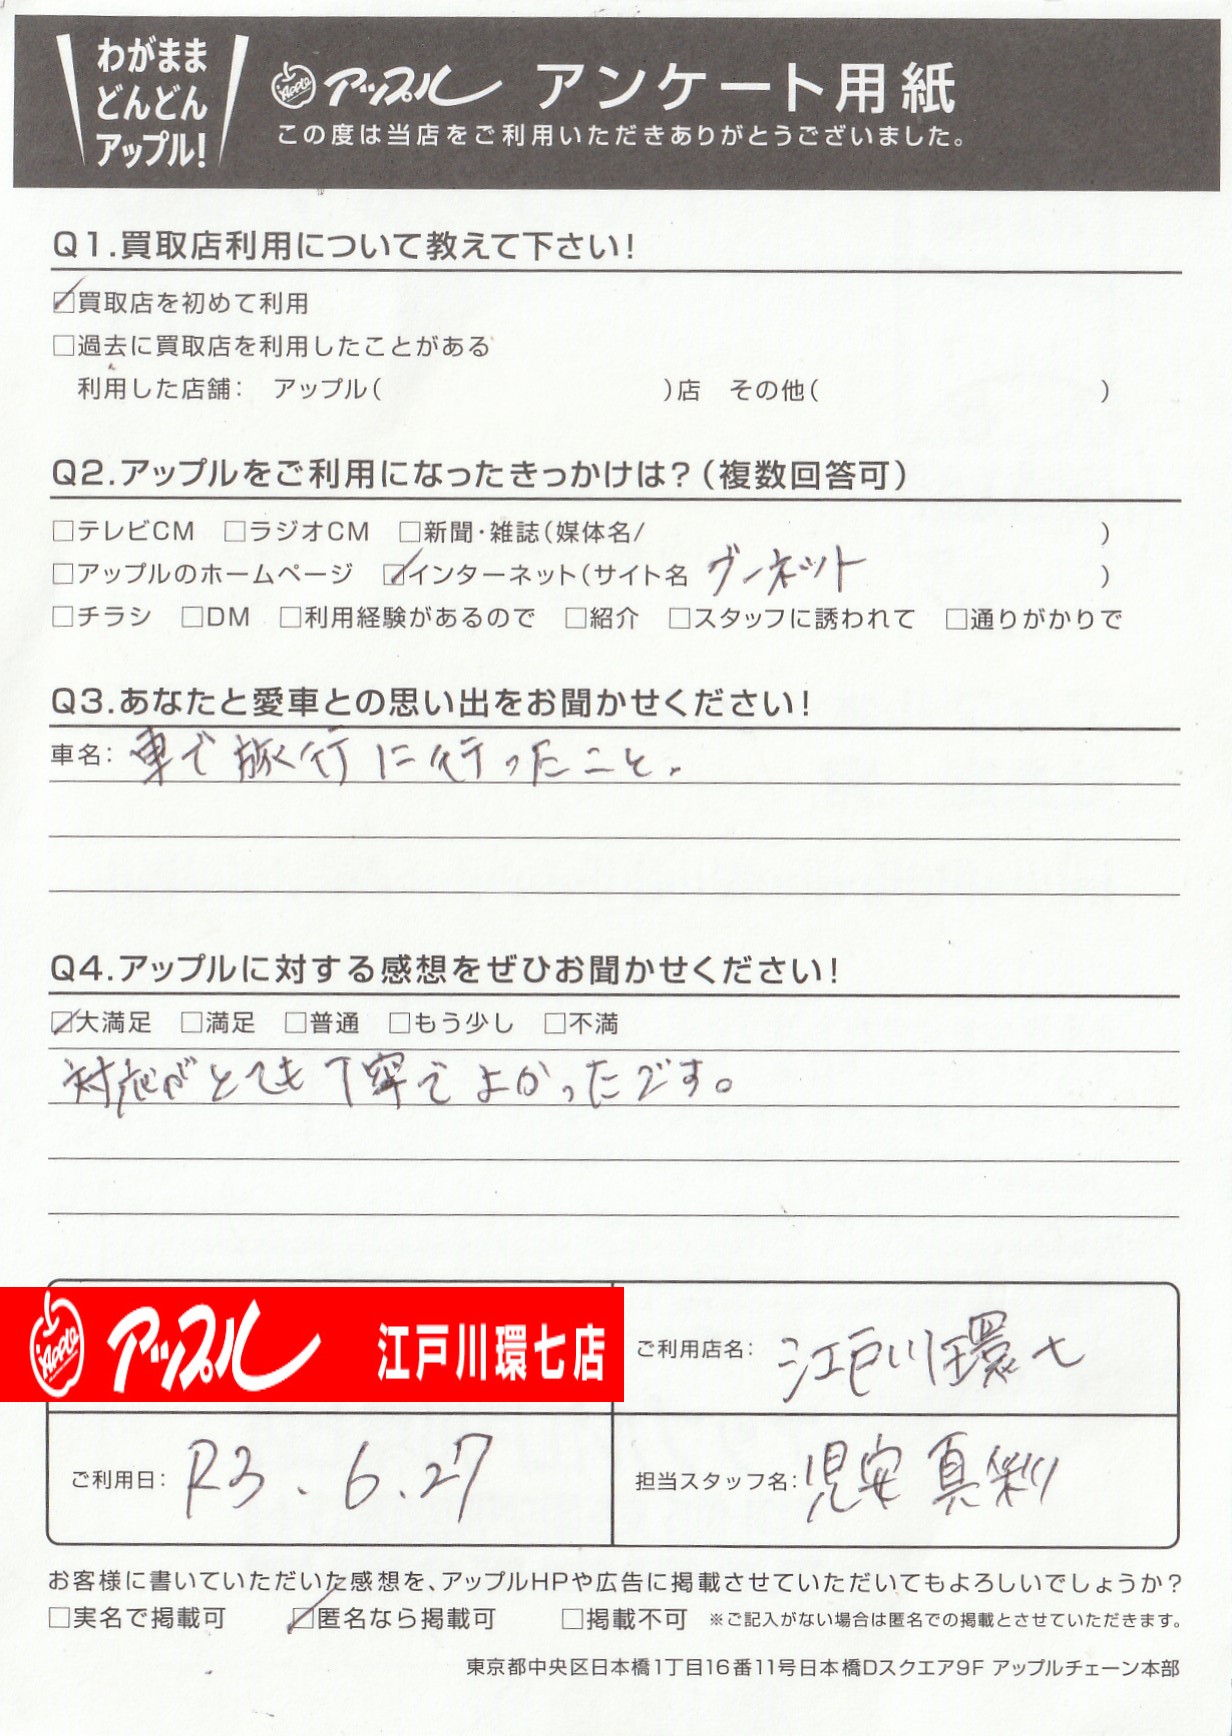 わがまま
どんどん
アップル!
Apple アップル アンケート用紙
この度は当店をご利用いただきありがとうございました。
Q1.買取店利用について教えて下さい!
☑買取店を初めて利用
□過去に買取店を利用したことがある
利用した店舗: アップル( )店 その他( )
Q2.アップルをご利用になったきっかけは?(複数回答可)
□テレビCM □ラジオCM □新聞・雑誌(媒体名/ )
□アップルのホームページ ☑インターネット(サイト名 グーネット )
□チラシ □DM □利用経験があるので □紹介 □スタッフに誘われて □通りがかりで
Q3.あなたと愛車との思い出をお聞かせください!
車名: 車で旅行に行ったこと。
Q4.アップルに対する感想をぜひお聞かせください!
☑大満足 □満足 □普通 □もう少し □不満
対応がとても丁寧でよかったです。
Apple アップル 江戸川環七店
ご利用店名: 江戸川環七
ご利用日: R3.6.27
担当スタッフ名: 児安 真彩
お客様に書いていただいた感想を、アップルHPや広告に掲載させていただいてもよろしいでしょうか?
□実名で掲載可 ☑匿名なら掲載可 □掲載不可 ※ご記入がない場合は匿名での掲載とさせていただきます。
東京都中央区日本橋1丁目16番11号日本橋Dスクエア9F アップルチェーン本部